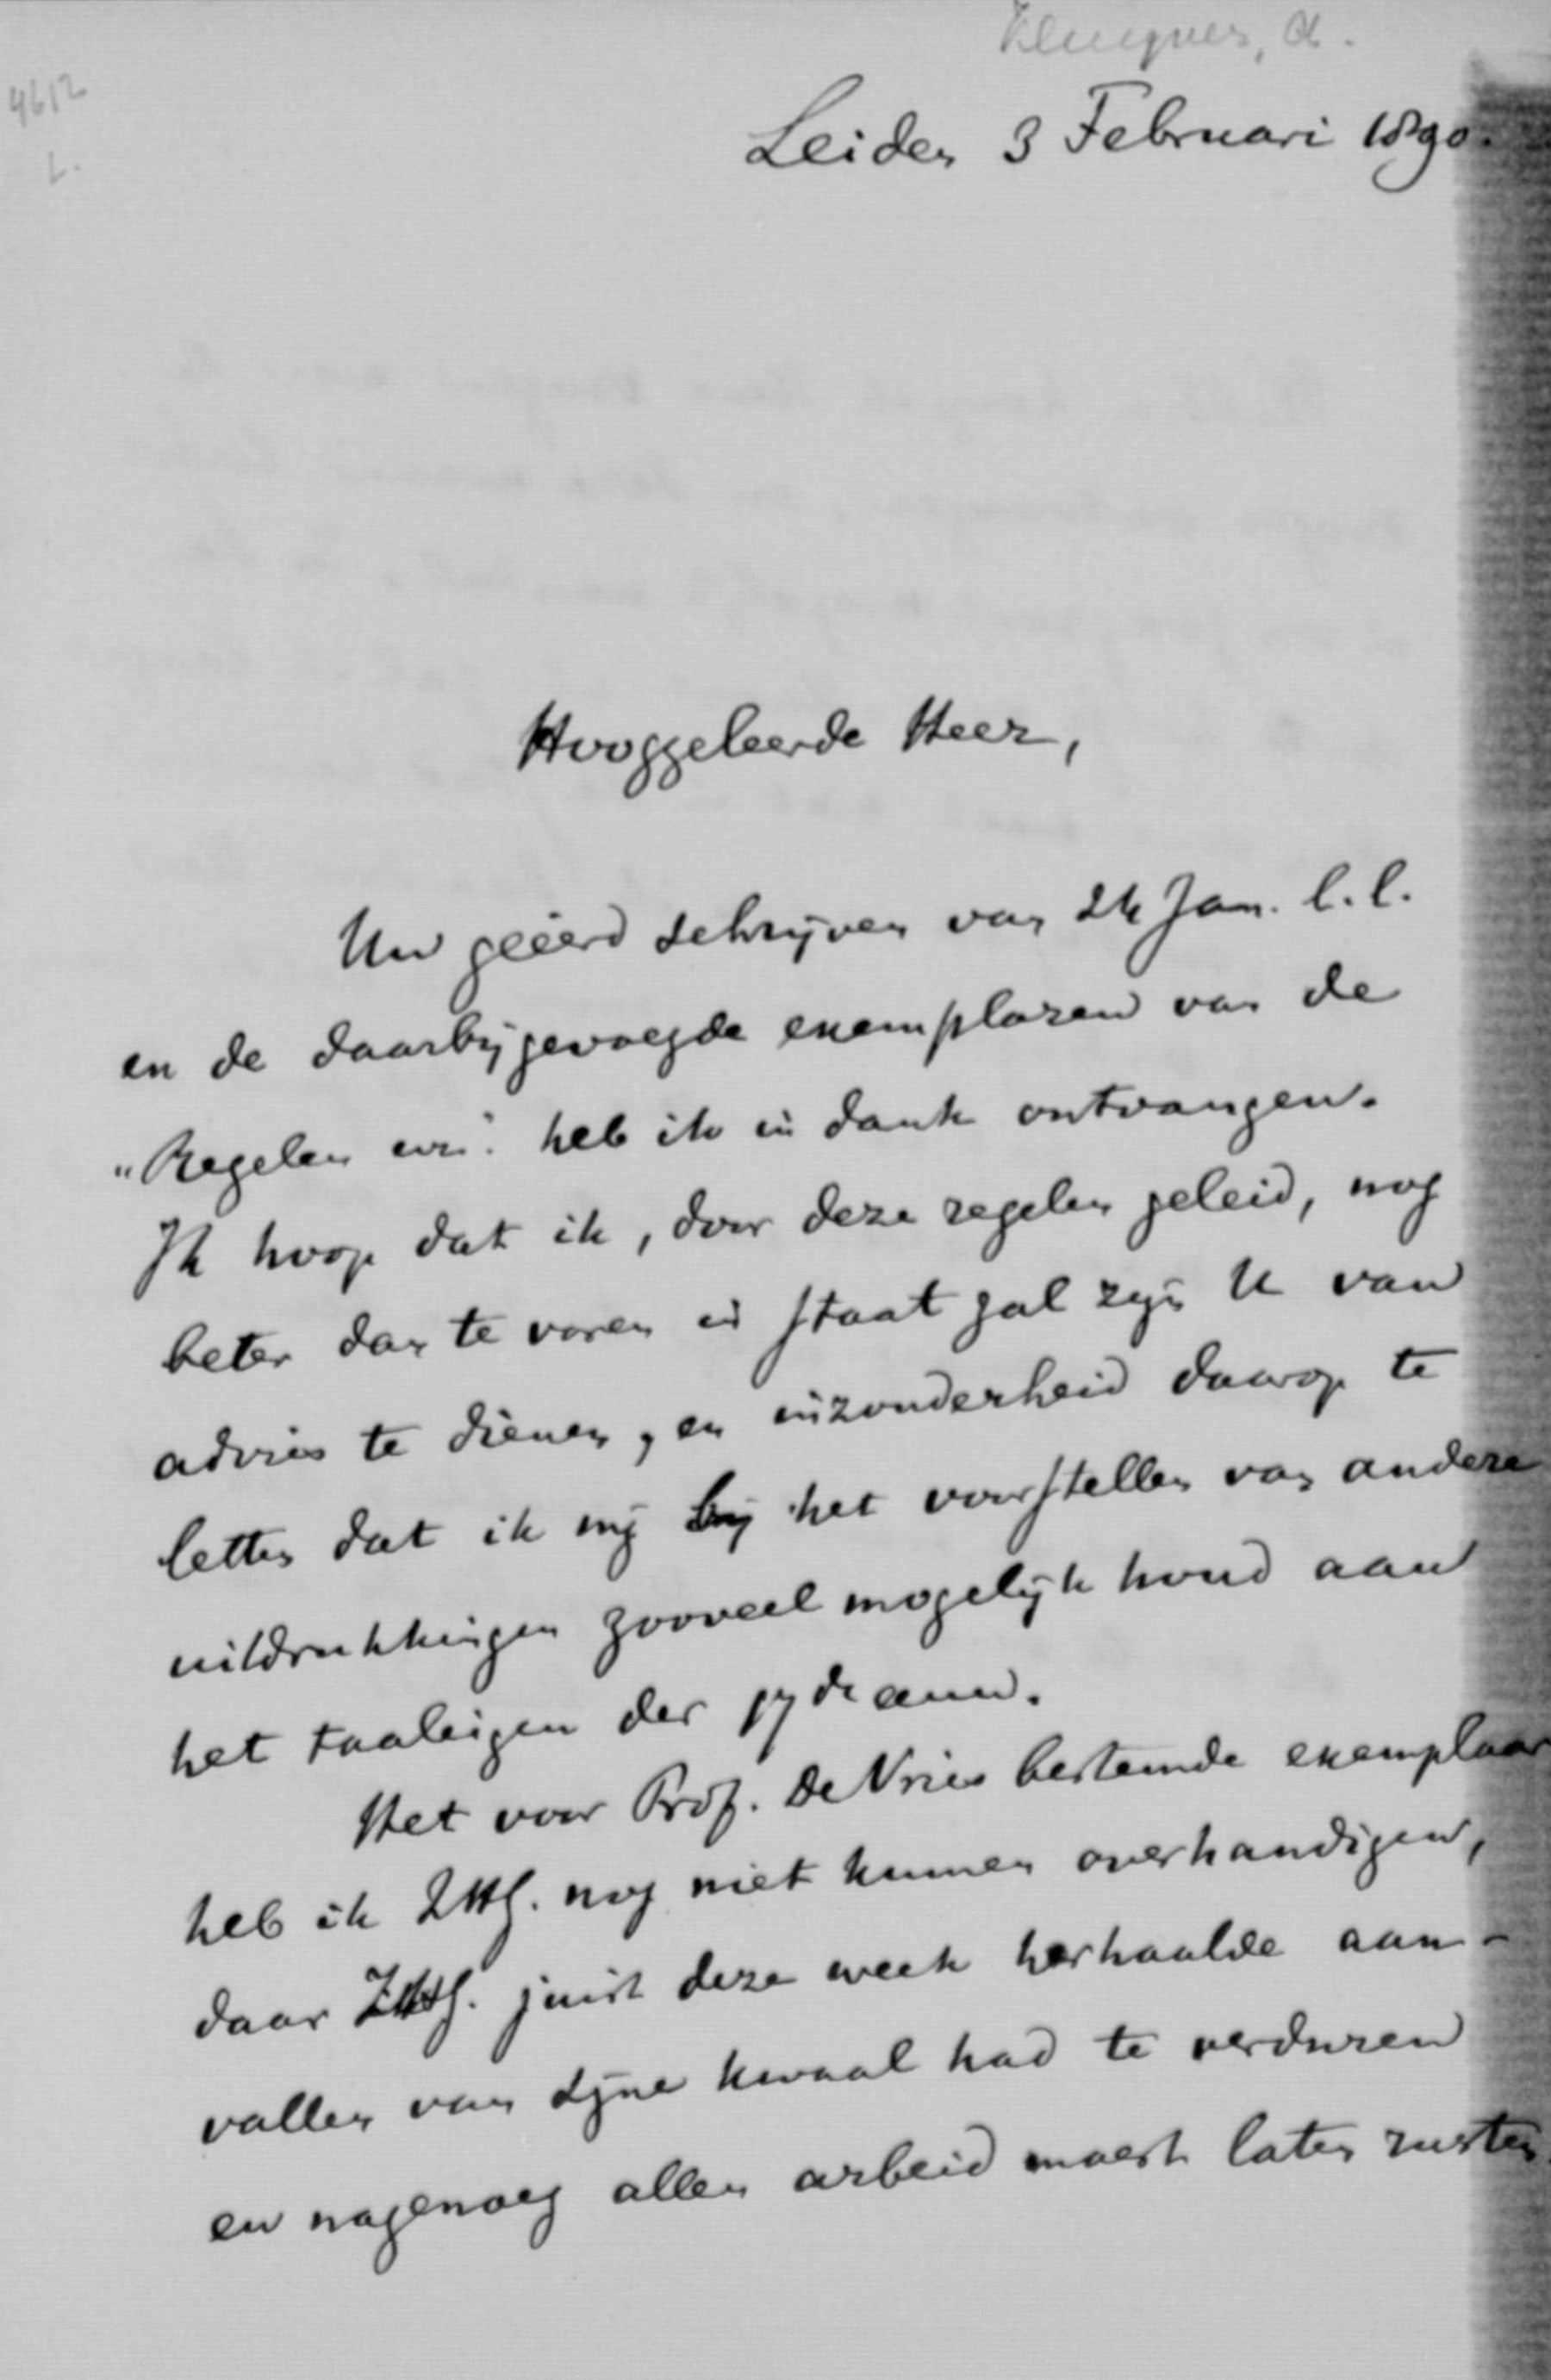 4612
L.
Leiden 3 Februari 1890.
Hooggeleerde Heer,
Uw geëerd schrijven van 24 Jan. l.l.
en de daarbijgevoegde exemplaren van de
"Regelen enz." heb ik in dank ontvangen.
Ik hoop dat ik, door deze regelen geleid, nog
beter dan te voren in staat zal zijn U van
advies te dienen, en inzonderheid daarop te
letten dat ik mij bij het voorstellen van andere
uitdrukkingen zooveel mogelijk houd aan
het taaleigen der
Het voor Prof. De Vries bestemde exemplaar
heb ik ZHG. nog niet kunnen overhandigen,
daar ZHG. juist deze week herhaalde aan-
vallen van zijne kwaal had te verduren
en nagenoeg allen arbeid moest laten rusten.